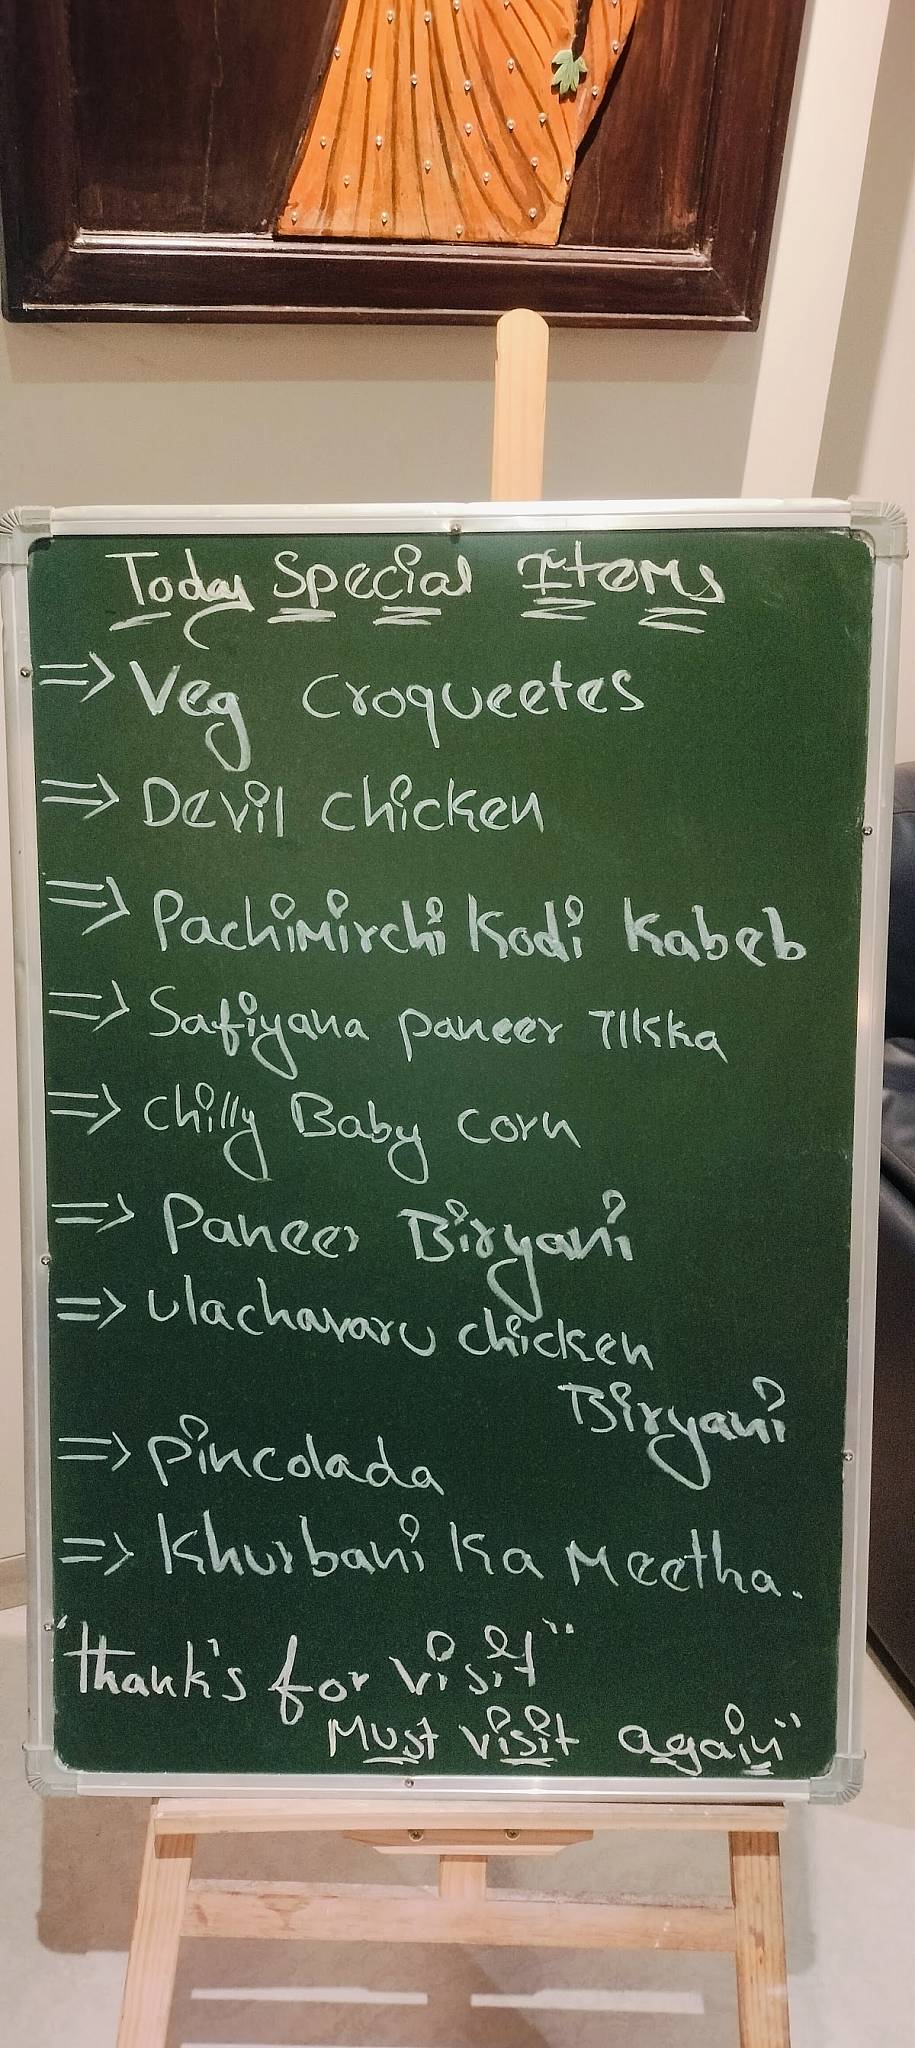 Today Special Items
=> Veg Croqueetes
=> Devil Chicken
=> Pachimirchi Kodi Kabeb
=> Safiyana Paneer TIkka
=> Chilly Baby Corn
=> Paneer Biryani
=> Ulachavaru Chicken
Biryani
=> Pincolada
=> Khurbani Ka Meetha.
"Thank's for visit"
Must visit again"